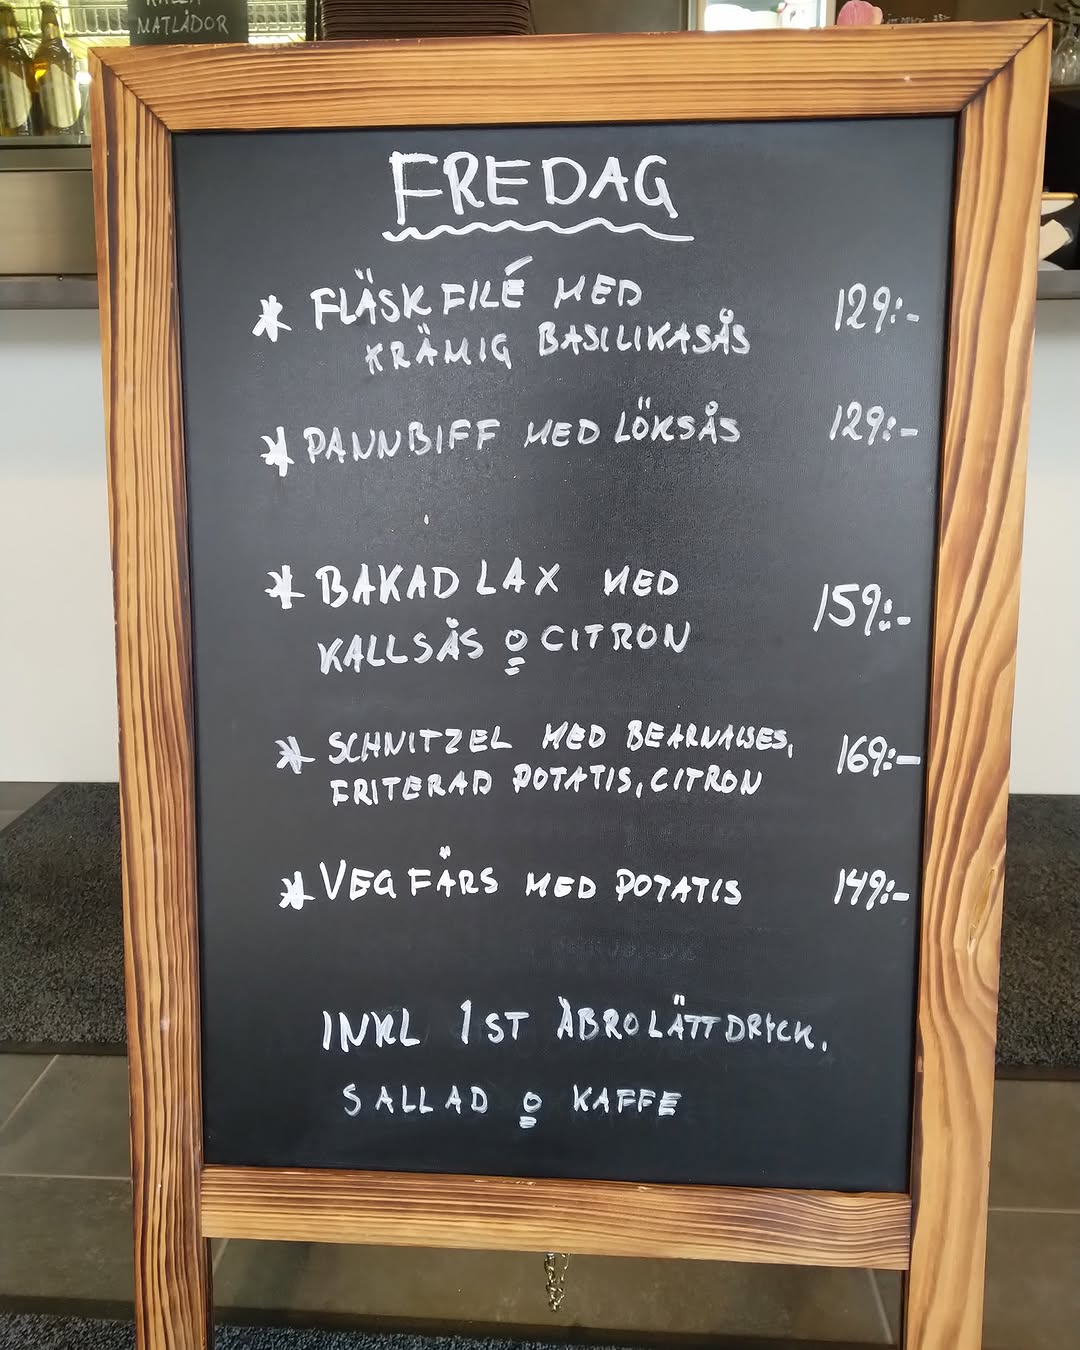 MATLÅDOR
FREDAG
* FLÄSKFILÉ MED 129:-
KRÄMIG BASILIKASÅS
* PANNBIFF MED LÖKSÅS 129:-
* BAKAD LAX MED
KALLSÅS o CITRON 159:-
* SCHNITZEL MED BEARNAISES, 169:-
FRITERAD POTATIS, CITRON
* VEG FÄRS MED POTATIS 149:-
INKL 1 ST ÅBRO LÄTTDRYCK.
SALLAD o KAFFE